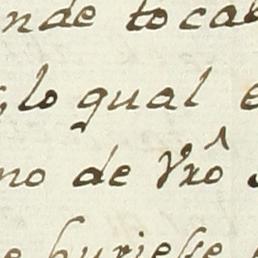 nde toca
lo qual e
no de Vrô
huriesse